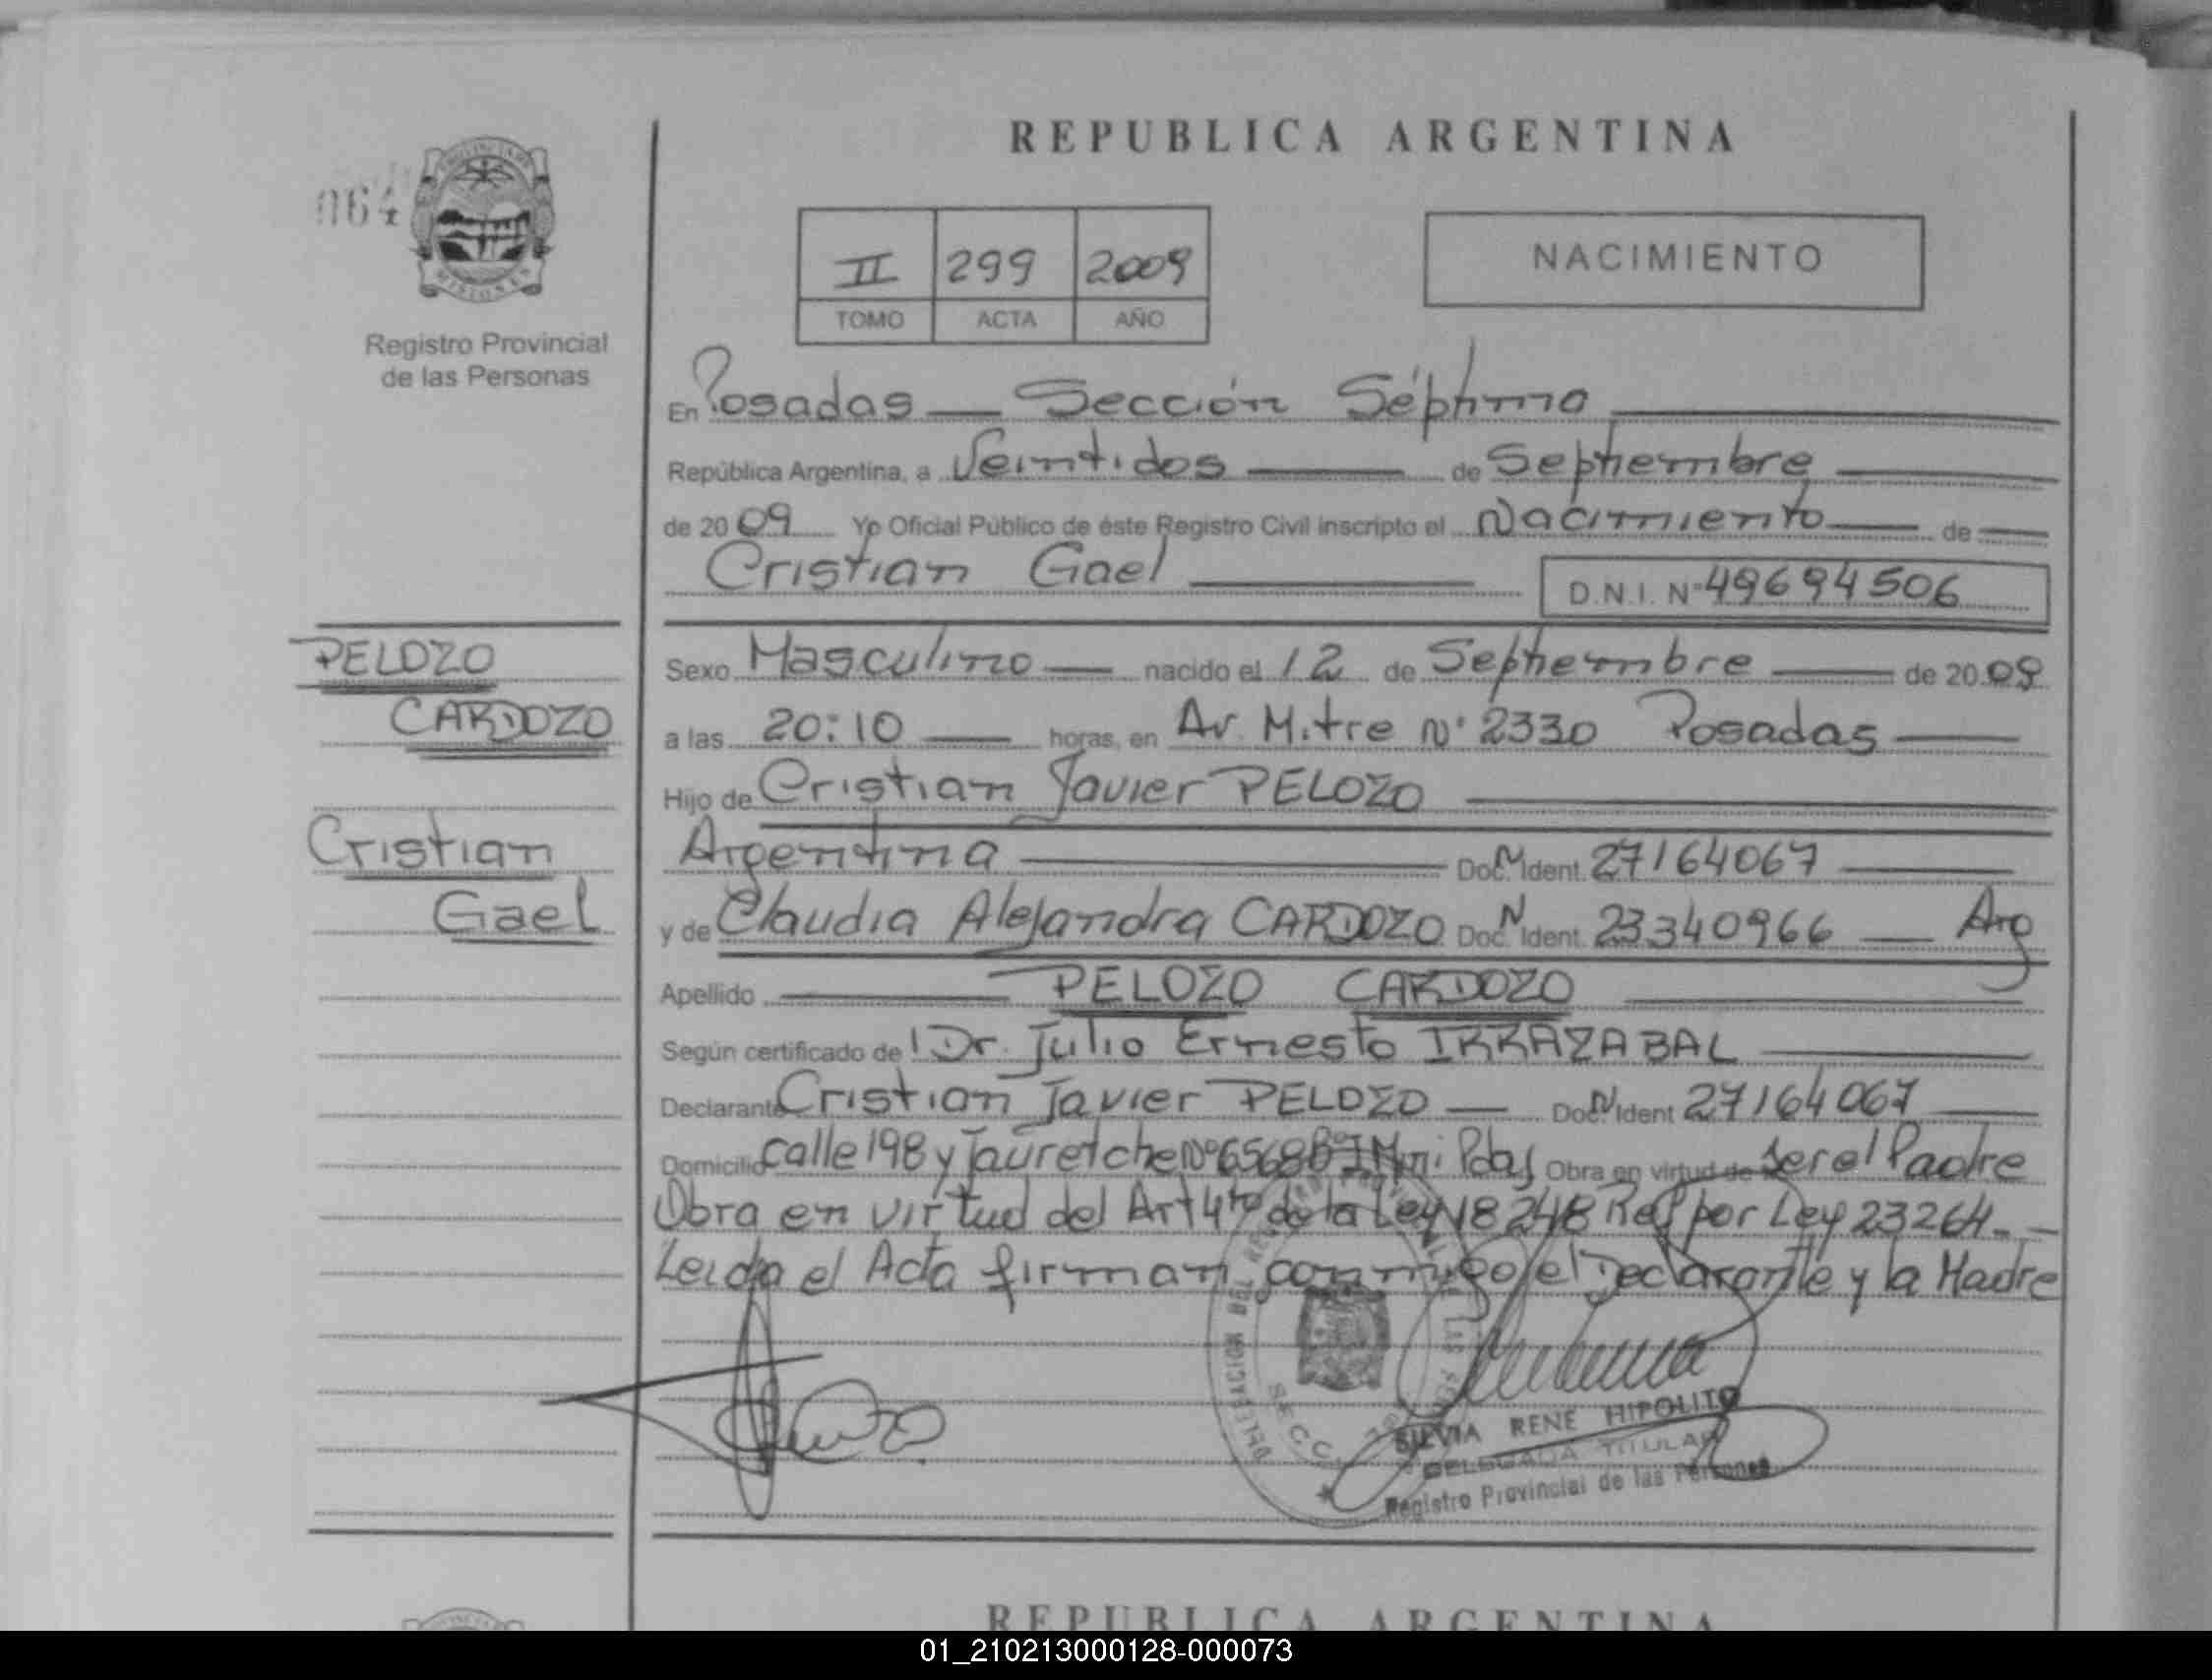 REPUBLICA ARGENTINA
064
II 299 2009
TOMO ACTA AÑO
NACIMIENTO
Registro Provincial
de las Personas
En Posadas — Sección Séptima
República Argentina, a Veintidos de Septiembre
de 2009 Yo Oficial Público de éste Registro Civil inscripto el Nacimiento de
Cristian Gael D.N.I. Nº 49694506
PELOZO
CARDOZO
Cristian
Gael
Sexo Masculino — nacido el 12 de Septiembre de 2009
a las 20:10 horas, en Av. Mitre Nº 2330 Posadas
Hijo de Cristian Javier PELOZO
Argentina DocN Ident. 27164067
y de Claudia Alejandra CARDOZO Doc.N Ident. 23340966 — Arg
Apellido PELOZO CARDOZO
Según certificado de l Dr. Julio Ernesto IRRAZABAL
Declarante Cristian Javier PELOZO — Doc.N Ident 27164067
Domicilio calle 198 y Jauretche Nº 6568 Bº I Mini Pdas Obra en virtud de Ser el Padre
Obra en virtud del Art 4to de la Ley 18248 Ref por Ley 23264.-
Leida el Acta firman conmigo el Declarante y la Madre
SILVIA RENE HIPOLITO
DELEGADA TITULAR
Registro Provincial de las Personas
REPUBLICA ARGENTINA
01_210213000128-000073